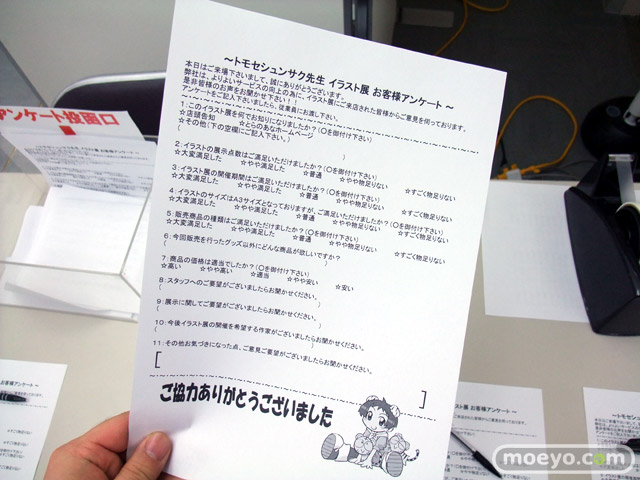 ～トモセシュンサク先生 イラスト展 お客様アンケート～
本日はご来場下さいまして、誠にありがとうございます。
弊社は、よりよいサービスの向上の為に、イラスト展にご来店された皆様からご意見を伺っております。
是非皆様のお声をお聞かせ下さい！！
アンケートをご記入下さいましたら、従業員にお渡し下さい。
1：このイラスト展を何でお知りになりましたか？（○を御付け下さい）
☆店頭告知 ☆とらのあなホームページ
☆その他（下の空欄にご記入下さい。）
（ ）
2：イラストの展示点数はご満足いただけましたか？（○を御付け下さい）
☆大変満足した ☆やや満足した ☆普通 ☆やや物足りない ☆すごく物足りない
3：イラスト展の開催期間はご満足いただけましたか？（○を御付け下さい）
☆大変満足した ☆やや満足した ☆普通 ☆やや物足りない ☆すごく物足りない
4：イラストのサイズはA3サイズとなっておりますが、ご満足いただけましたか？（○を御付け下さい）
☆大変満足した ☆やや満足した ☆普通 ☆やや物足りない ☆すごく物足りない
5：販売商品の種類はご満足いただけましたか？（○を御付け下さい）
☆大変満足した ☆やや満足した ☆普通 ☆やや物足りない ☆すごく物足りない
6：今回販売を行ったグッズ以外にどんな商品が欲しいですか？
（ ）
7：商品の価格は適当でしたか？（○を御付け下さい）
☆高い ☆やや高い ☆適当 ☆やや安い ☆安い
8：スタッフへのご要望がございましたらお聞かせください。
（ ）
9：展示に関してご要望がございましたらお聞かせください。
（ ）
10：今後イラスト展の開催を希望する作家がございましたらお聞かせください。
（ ）
11：その他お気づきになった点、ご意見ご要望がございましたらお聞かせください。
[ ]
ご協力ありがとうございました
アンケート投函口
お客様アンケート～
イラスト展 お客様アンケート～
～トモセシュン
moeyo.com